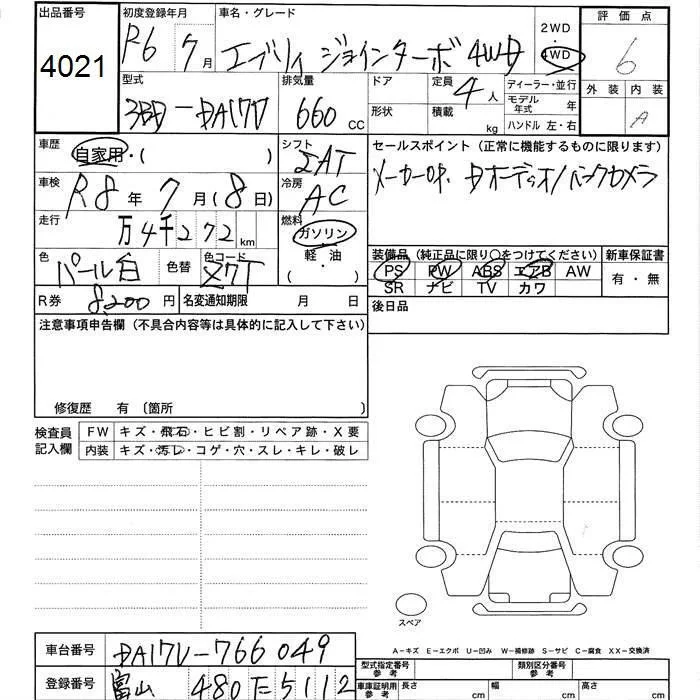 出品番号 初度登録年月 車名・グレード 2WD 評価点
4021 R6 7月 エブリィ ジョインターボ 4WD 4WD 6
型式 排気量 ドア 定員 4人 ディーラー・並行 外装 内装
3BD-DA17V 660 CC 形状 積載 kg モデル年式 年 A
ハンドル 左・右
車歴 自家用・( ) シフト ΣAT セールスポイント (正常に機能するものに限ります)
車検 R8年 7月(8日) 冷房 AC メーカーOP. Dオーディオ/バックカメラ
走行 万4千272km 燃料 ガソリン・軽油 ( )
色 パール白 色替 色コード Z7T 装備品 (純正品に限り○をつけてください) 新車保証書
PS PW ABS エアB AW 有・無
SR ナビ TV カワ
R券 8,200円 名変通知期限 月 日 後日品
注意事項申告欄 (不具合内容等は具体的に記入して下さい)
修復歴 有 〔箇所 〕
検査員記入欄 FW キズ・飛石・ヒビ割・リペア跡・X要
内装 キズ・汚レ・コゲ・穴・スレ・キレ・破レ
スペア
A-キズ E-エクボ U-凹み W-補修跡 S-サビ C-腐食 XX-交換済
車台番号 DA17V-766049 型式指定番号 参考 類別区分番号 参考
登録番号 富山 480 た 5112 車庫証明用 参考 長さ cm 幅 cm 高さ cm